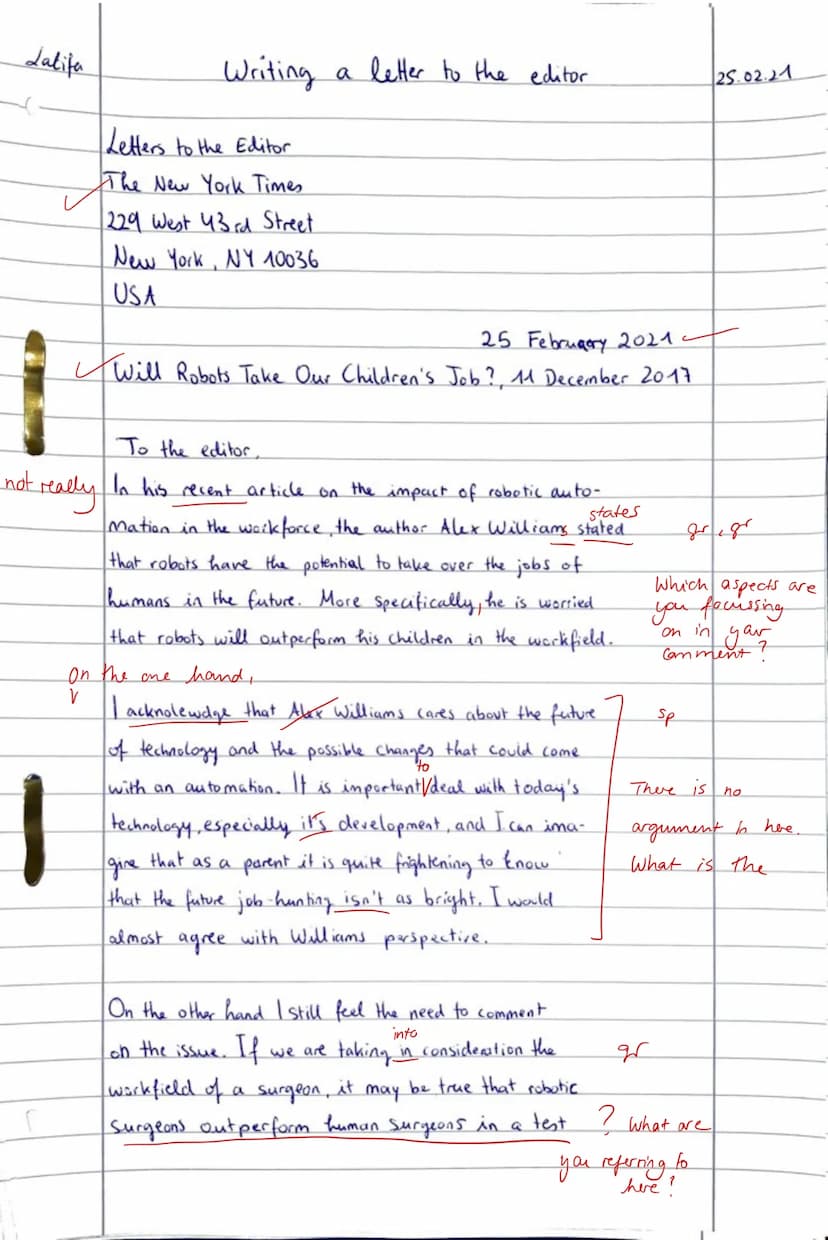 Lalifa
Writing a letter to the editor
25.02.21
Letters to the Editor
The New York Times
229 West 43rd Street
New York, NY 10036
USA
25 February 2021
Will Robots Take Our Children's Job?, 11 December 2017
To the editor,
not really
In his recent article on the impact of robotic auto-
states
mation in the workforce, the author Alex Williams stated
gr, gr
that robots have the potential to take over the jobs of
humans in the future. More specifically, he is worried
that robots will outperform his children in the workfield.
Which aspects are
you focussing
on in your
comment?
On the one hand,
I acknolewdge that Alex Williams cares about the future
sp
of technology and the possible changes that could come
to
with an automation. It is important deal with today's
technology, especially it's development, and I can ima-
gine that as a parent it is quite frightening to know
that the future job-hunting isn't as bright. I would
almost agree with Williams perspective.
There is no
argument in here.
What is the
On the other hand I still feel the need to comment
into
on the issue. If we are taking in consideration the
gr
workfield of a surgeon, it may be true that robotic
surgeons outperform human surgeons in a test
? What are
you referring to
here?